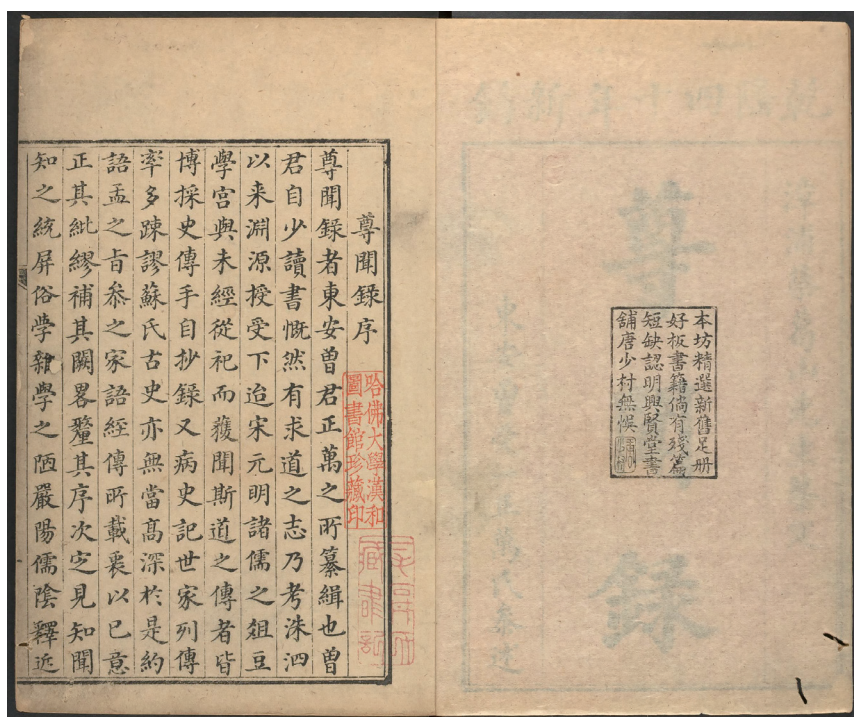 本坊精選新舊足册
好板書籍倘有殘篇
短缺認明興賢堂書
舖唐少村無悞
尊聞錄序
尊聞錄者東安曾君正萬之所纂緝也曾
君自少讀書慨然有求道之志乃考洙泗
以来淵源授受下迨宋元明諸儒之俎豆
學宫與未經從祀而獲聞斯道之傳者皆
博採史傳手自抄錄又病史記世家列傳
率多踈謬蘇氏古史亦無當高深於是約
語孟之旨叅之家語經傳所載裒以已意
正其紕繆補其闕畧釐其序次定見知聞
知之統屏俗學雜學之陋嚴陽儒陰釋近
哈佛大學漢和
圖書館珍藏印